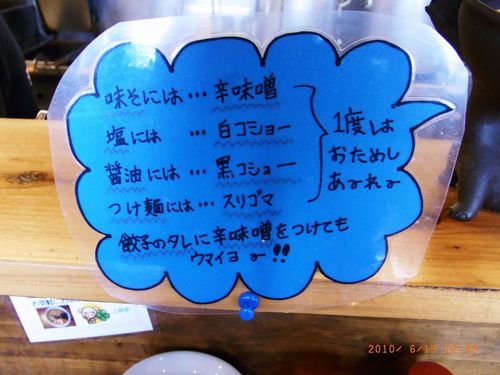 味そには…辛味噌
塩には…白コショー
醤油には…黒コショー
つけ麺には…スリゴマ
1度は
おためし
あ〜れ〜
餃子のタレに辛味噌をつけても
ウマイヨー!!
2010/ 6/15